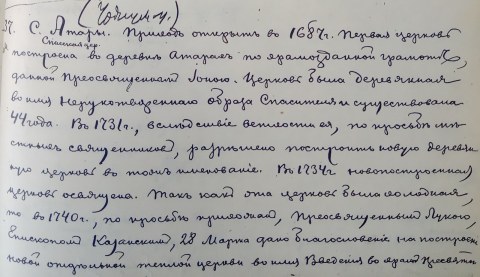 (Чебаксин. у.)
37. С. Атары. Приходъ открытъ въ 1687г. Первая церковь
Спасская цер.
построена въ деревнѣ Атарахъ по храмозданной грамотѣ,
данной Преосвященнымъ Іоною. Церковь была деревянная
во имя Нерукотвореннаго образа Спасителя и существовала
44 года. Въ 1731г., вслѣдствіе ветхости ея, по просьбѣ мѣ
стныхъ священниковъ, разрѣшено построить новую деревян
ную церковь въ тоже именованіе. Въ 1734г новопостроенная
церковь освящена. Такъ какъ эта церковь была холодная,
то въ 1740г., по просьбѣ прихожанъ, Преосвященный Лукою,
Епископомъ Казанскимъ, 28 Марта дано благословеніе на построеніе
новой отдѣльной теплой церкви во имя Введенія во храмъ Пресвятыя